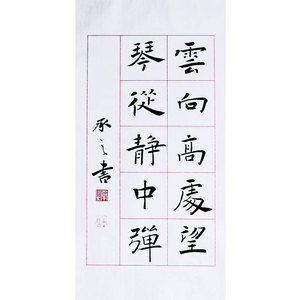 雲向高處望
琴從静中彈
承之書